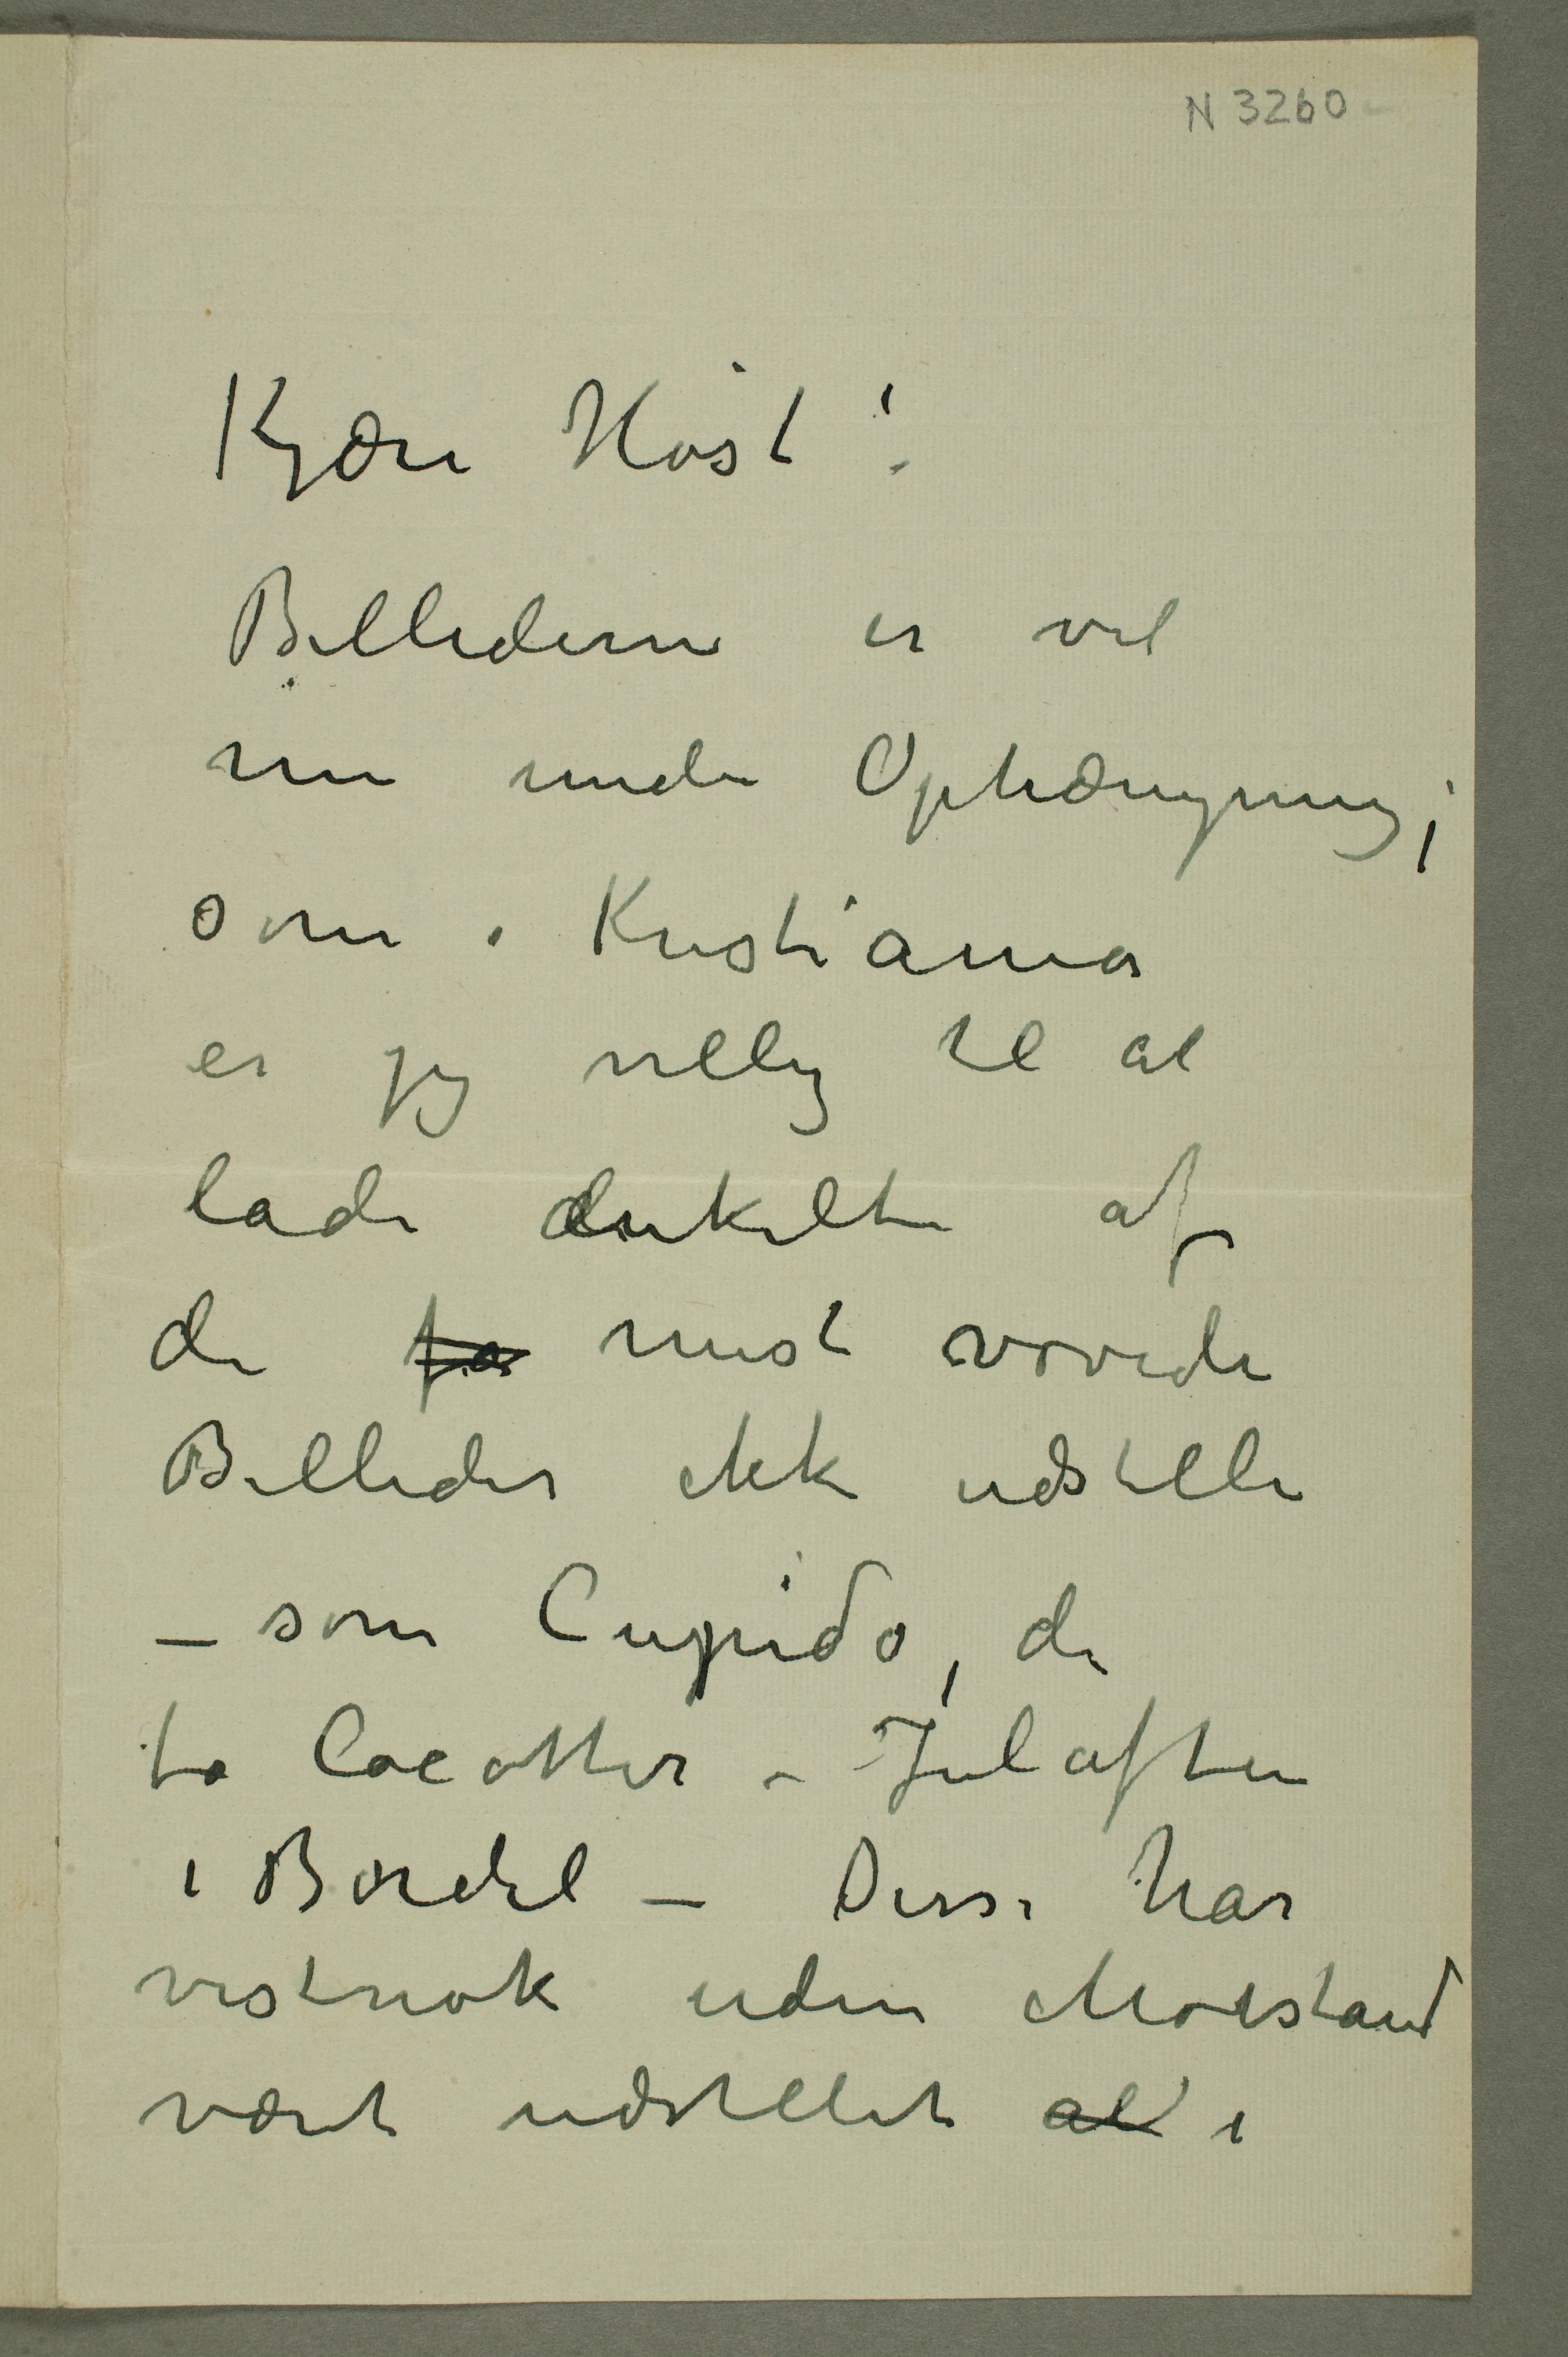 N 3260
Kjære Høst!
Billederne er vel
nu under Ophængning;
som i Kristiania
er jeg villig til at
lade enkelte af
de fo mest vovede
Billeder ikke udstille
– som Cupido, de
to Cocotter – Julaften
i Bordel – Disse har
vistnok uden Modstand
været udstillet al i